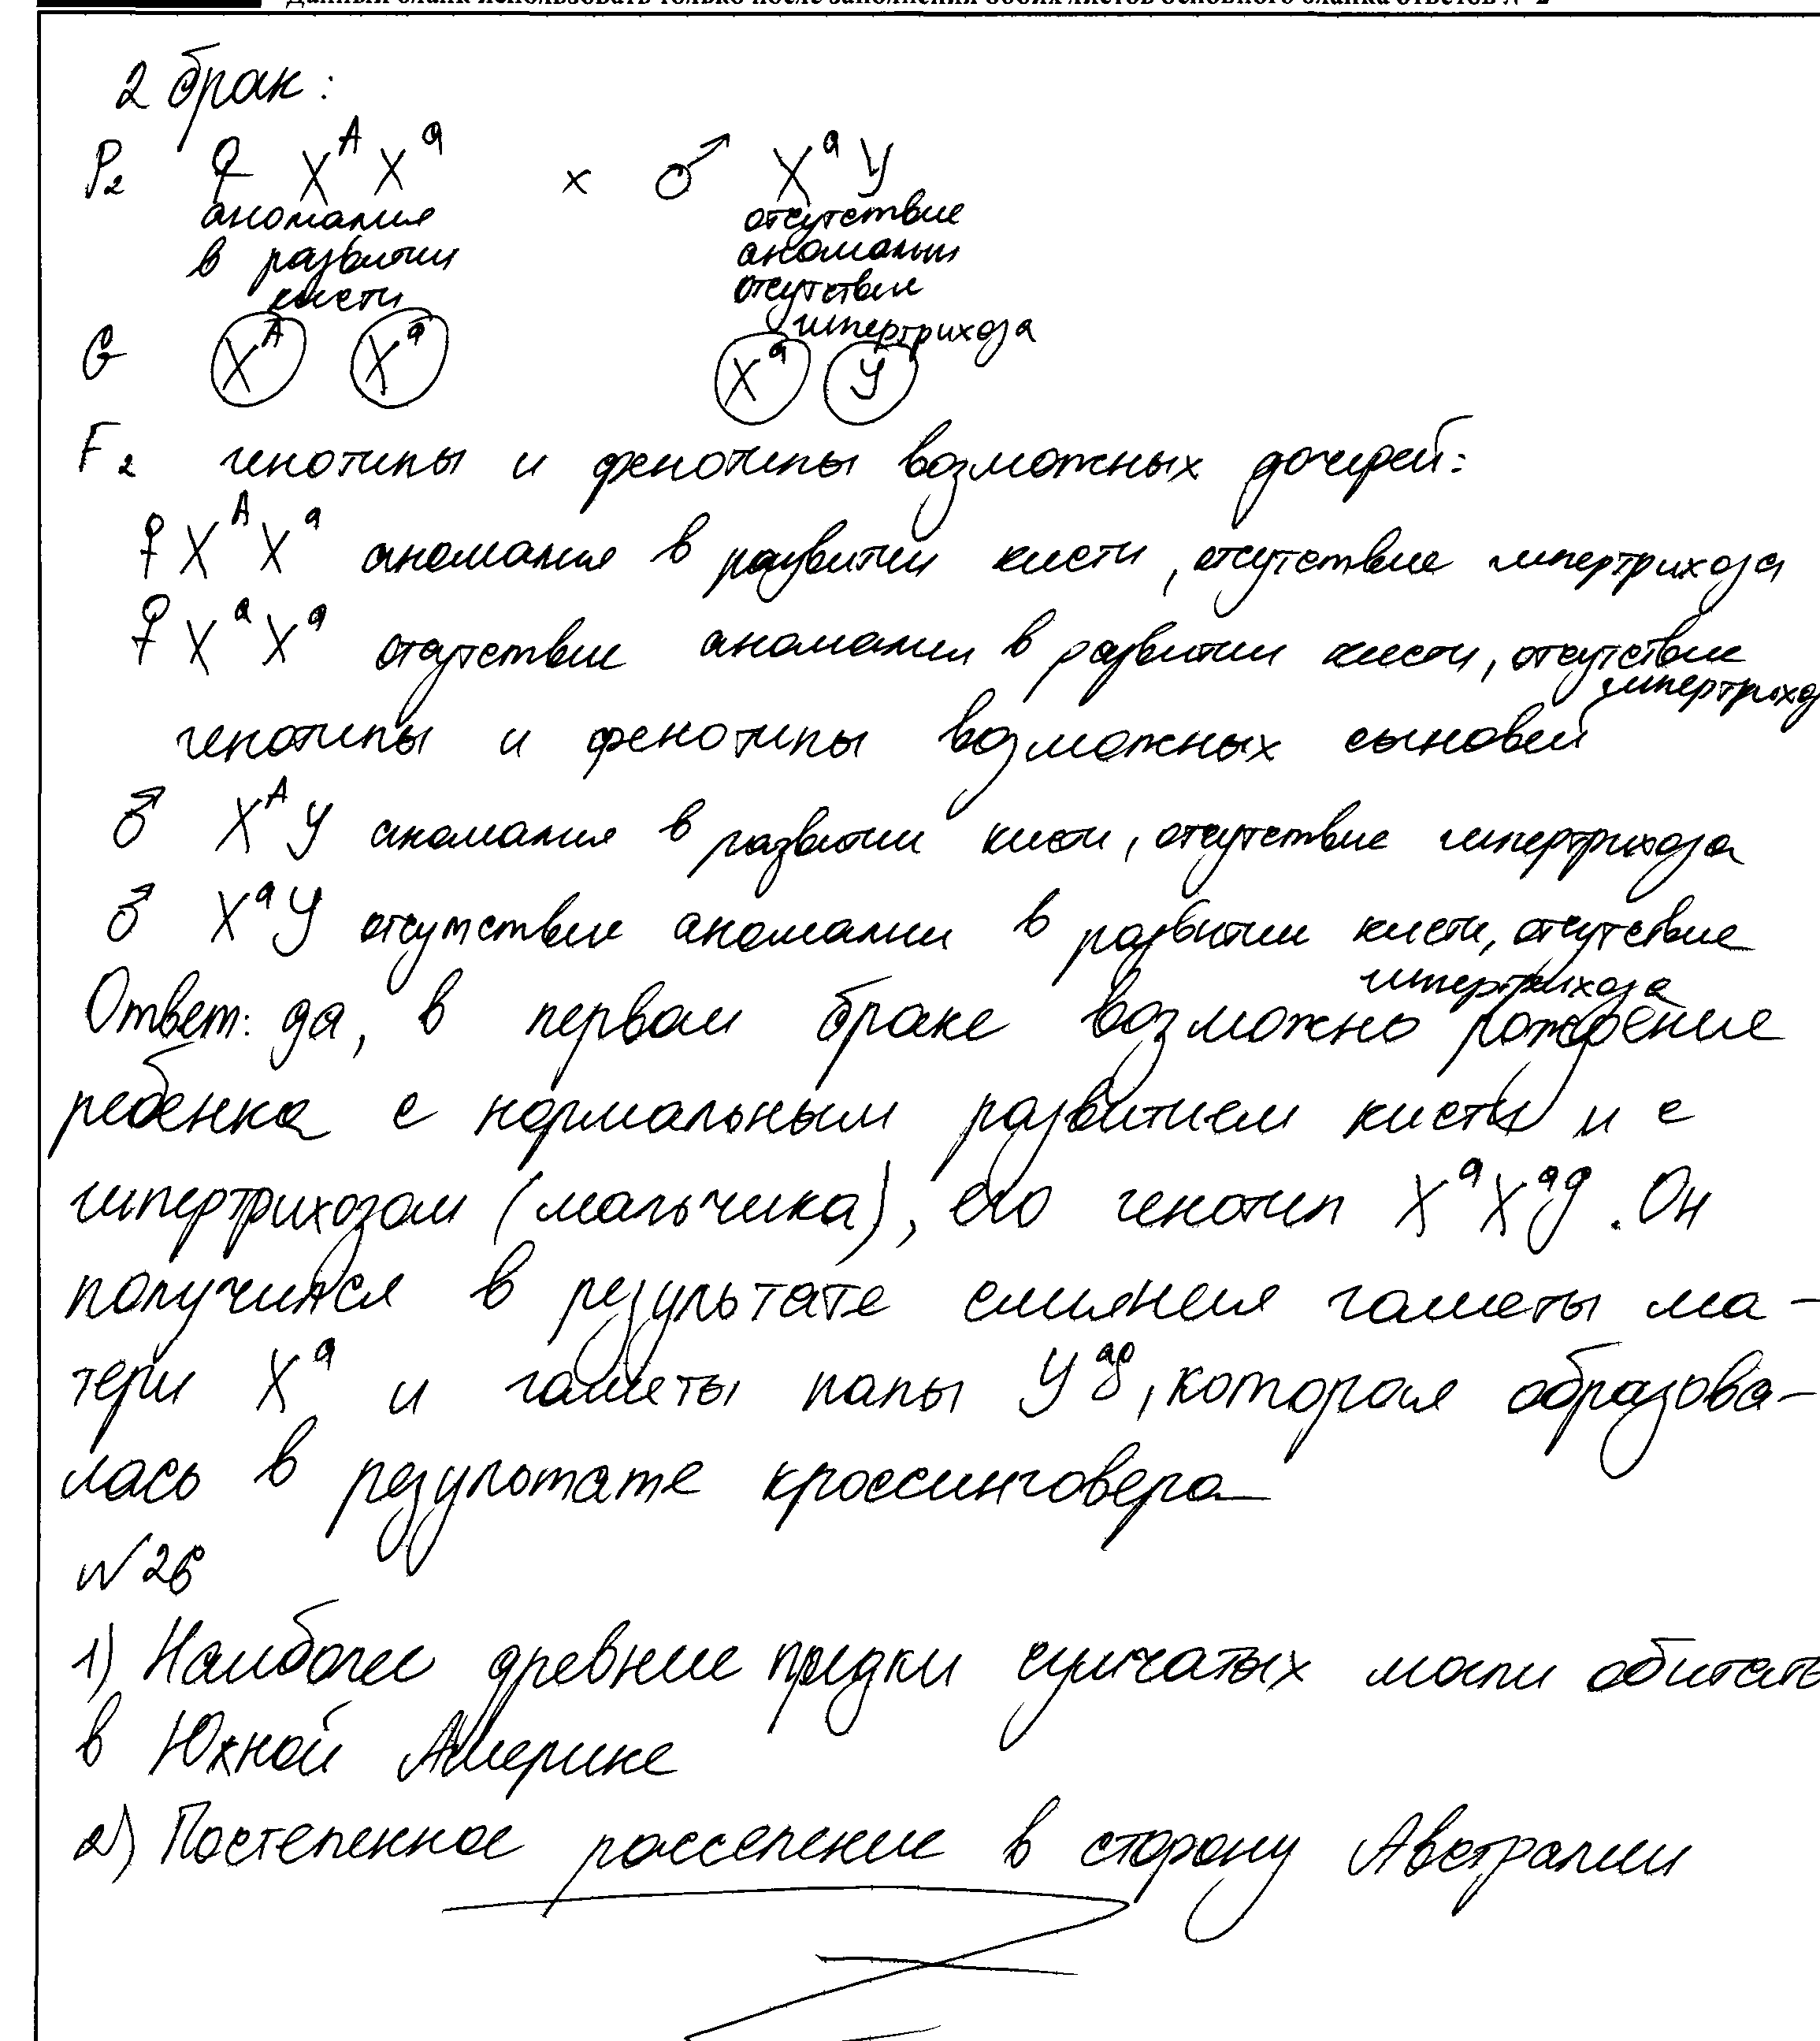 Данный бланк использовать только после заполнения обоих листов основного бланка ответов № 2
2 брак:
P₂ ♀ XᴬXᵃ × ♂ XᵃY
аномалия отсутствие
в развитии аномалии
кисти отсутствие
гипертрихоза
G Xᴬ Xᵃ Xᵃ Y
F₂ генотипы и фенотипы возможных дочерей:
♀ XᴬXᵃ аномалия в развитии кисти, отсутствие гипертрихоза
♀ XᵃXᵃ отсутствие аномалии в развитии кисти, отсутствие
гипертрихоз
генотипы и фенотипы возможных сыновей
♂ XᴬY аномалия в развитии кисти, отсутствие гипертрихоза
♂ XᵃY отсутствие аномалии в развитии кисти, отсутствие
гипертрихоза
Ответ: да, в первом браке возможно рождение
ребенка с нормальным развитием кисти и с
гипертрихозом (мальчика), его генотип XᵃXᵃᵍ. Он
получился в результате слияния гаметы ма-
тери Xᵃ и гаметы папы Yᵃᵟ, которая образова-
лась в результате кроссинговера
№26
1) Наиболее древние предки сумчатых могли обитать
в Южной Америке
2) Постепенное расселение в сторону Австралии